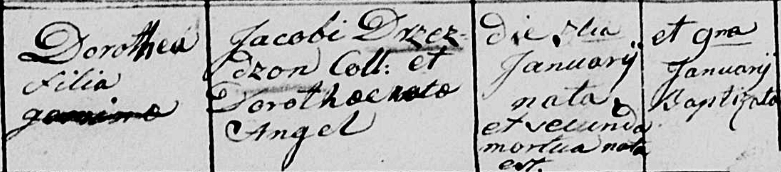 Dorothea
Filia
gemina
Jacobi Drzez-
dzon Coll: et
Dorotheae nata
Angel
die 7ma
Januarij
nata
et secunda
mortua nata
est.
et 9na
Januarij
Baptizata